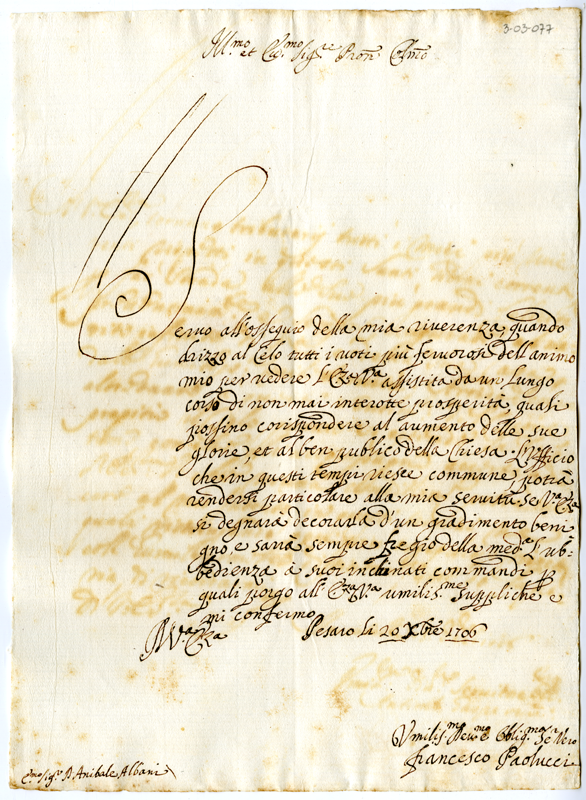 3-03-077
Ill.mo et Ecc.mo Sig.re Pron. Col.mo
Servo all'ossequio della mia riverenza, quando
drizzo al Celo tutti i voti più fervorosi dell'animo
mio per vedere l'Ecc.Va assistita da un Lungo
corso di non mai interotte prosperità, quali
possino corispondere al aumento delle sue
glorie, et al ben publico della Chiesa. L'Ufficio
che in questi tempi riesce commune, potrà
rendersi particolare alla mia servitù, se V.a Ecc.za
si degnarà decorarla d'un gradimento beni
gno, e sarà sempre fregio della med.a l'ub-
bedienza à suoi inclinati commandi, p
quali porgo all'Ecc.Va umilis.me suppliche e
mi confermo
Di V.a Ecc.za Pesaro li 20 Xbre 1706
Umilis.mo Dev.mo et Oblig.mo Se.re Vero
Francesco Paolucci
Emo Sig.r D. Anibale Albani